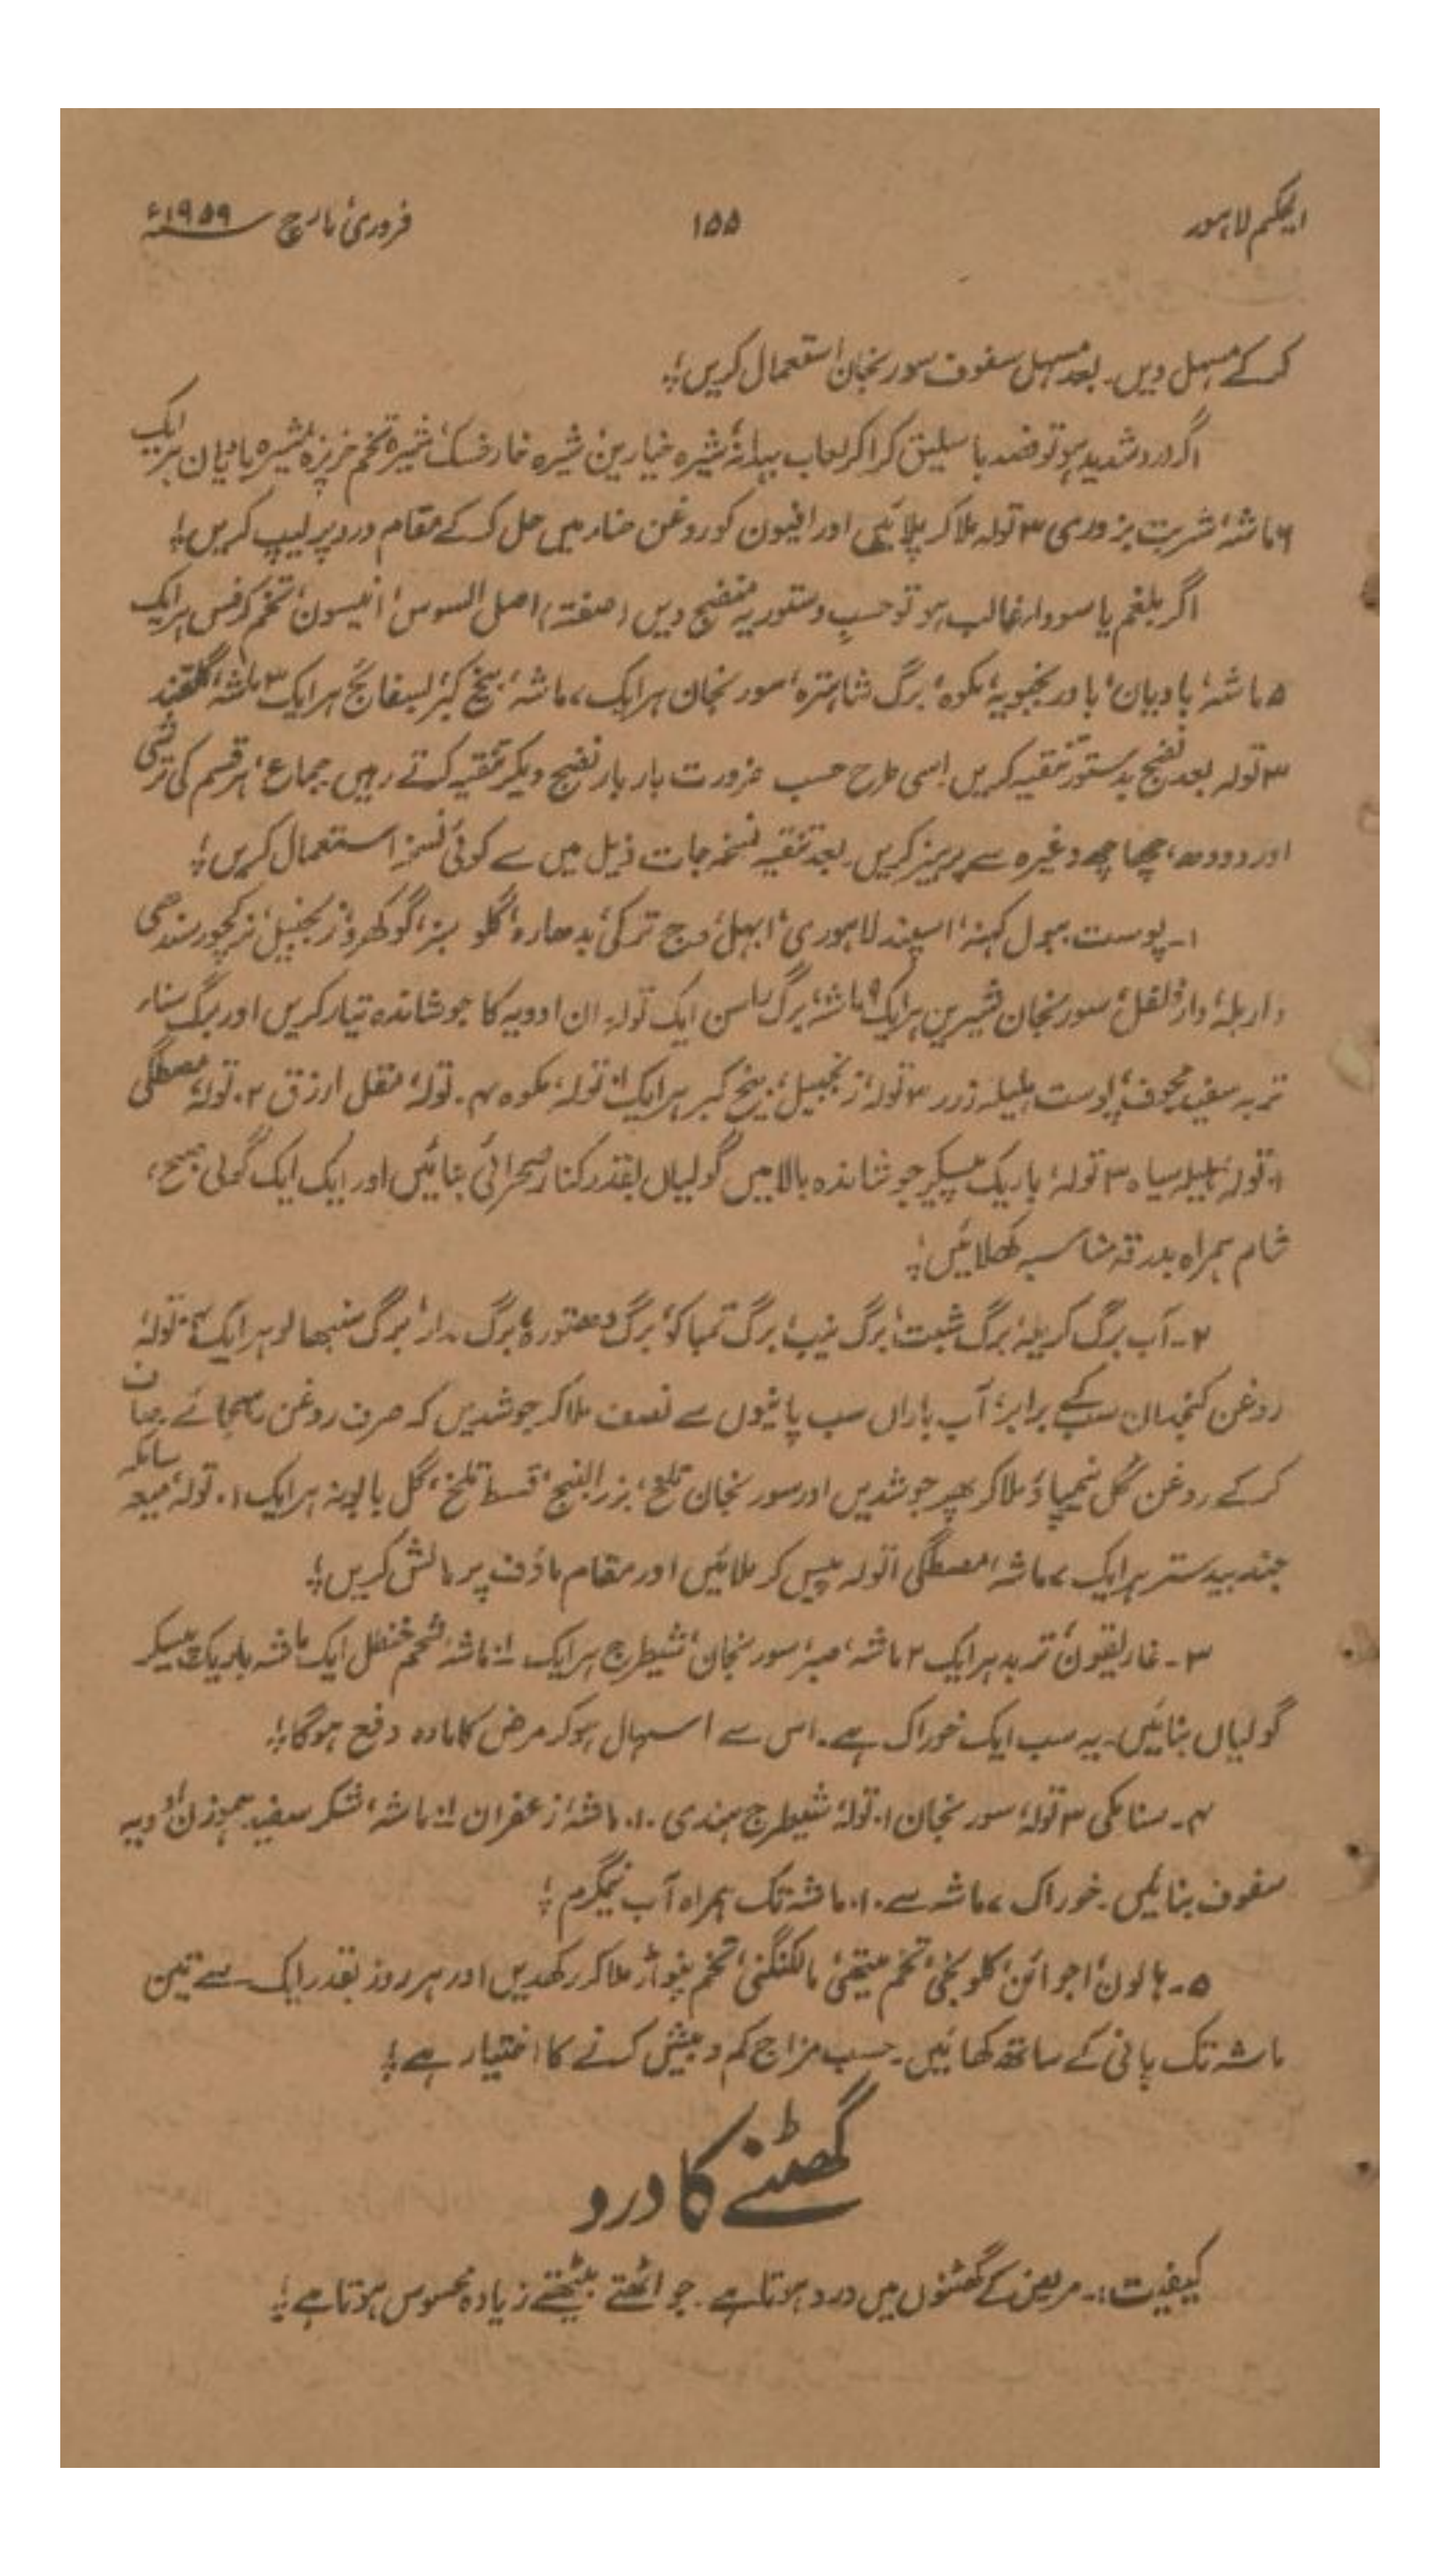 الحکیم لاہور ۱۵۵ فروری، مارچ سنہ ۱۹۵۹ء
کر کے مسہل دیں۔ بعد مسہل سفوف سورنجان استعمال کریں؛
اگر درد شدید ہو تو فصد باسلیق کرا کر لعاب بہدانہ، شیرہ خیارین، شیرہ خارخسک، شیرہ تخم خرپزہ، شیرہ بادیان ہر ایک
۶ ماشہ، شربت بزوری ۳ تولہ ملا کر پلائیں اور افیون کو روغن حناء میں حل کر کے مقام درد پر لیپ کریں؛
اگر بلغم یا سوداء غالب ہو تو حسب دستور یہ منضج دیں (صفتہ) اصل السوس، انیسون، تخم کرفس ہر ایک
۵ ماشہ، بادیان، بادرنجبویہ، مکوہ، برگ شاہترہ، سورنجان ہر ایک ۷ ماشہ، بیخ کبر، بسفائج ہر ایک ۳ ماشہ، گلقند
۳ تولہ بعد نضج بدستور تنقیہ کریں۔ اسی طرح حسب ضرورت بار بار نضج دیکر تنقیہ کرتے رہیں۔ جماع، ہر قسم کی ترشی
اور دودھ، چھاچھ وغیرہ سے پرہیز کریں۔ بعد تنقیہ نسخہ جات ذیل میں سے کوئی نسخہ استعمال کریں؛
۱۔ پوست ببول کہنہ، اسپند لاہوری، ابہل، وج ترکی، بدھارہ، گلو سبز، گوکھرو، زنجبیل، نرکچور، سندھی
داربلد، دارفلفل، سورنجان شیریں ہر ایک ۹ ماشہ، برگ ایک تولہ۔ ان ادویہ کا جوشاندہ تیار کریں اور برگ سناء
تربد سفید مجوف، پوست ہلیلہ زرد ۳ تولہ، زنجبیل، بیخ کبر ہر ایک تولہ، مکوہ ۴۔ تولہ، مقل ارزق ۲۔ تولہ، مصطگی
۱۔ تولہ، ہلیلہ سیاہ ۳ تولہ، باریک پیسکر جوشاندہ بالا میں گولیاں بقدر کنار صحرائی بنائیں اور ایک ایک گولی صبح،
شام ہمراہ بدرقہ مناسب کھلائیں؛
۲۔ آب برگ کریلہ، برگ شبت، برگ نیب، برگ تمباکو، برگ دھتورہ، برگ مدار، برگ سنبھالو ہر ایک تولہ،
روغن کنجد ان سب کے برابر، آب باراں سب پانیوں سے نصف ملا کر جوشدیں کہ صرف روغن رہجائے۔ صاف
کر کے روغن گل نیم پاؤ ملا کر پھر جوشدیں اور سورنجان تلخ، بزرالبنج، قسط تلخ، گل بابونہ ہر ایک ۱۔ تولہ، میعہ سائلہ
جندبیدستر ہر ایک ۷ ماشہ، مصطگی ۱ تولہ پیس کر ملائیں اور مقام ماؤف پر مالش کریں؛
۳۔ غاریقون، تربد ہر ایک ۲ ماشہ، صبر، سورنجان، شیطرج ہر ایک ماشہ، شحم حنظل ایک ماشہ باریک پیسکر
گولیاں بنائیں۔ یہ سب ایک خوراک ہے۔ اس سے اسہال ہو کر مرض کا مادہ دفع ہوگا؛
۴۔ سنا مکی ۳ تولہ، سورنجان ۱۔ تولہ، شیطرج ہندی ۱۰۔ ماشہ، زعفران ماشہ، شکر سفید ہموزن ادویہ
سفوف بنائیں۔ خوراک ۷ ماشہ سے ۱۰۔ ماشہ تک ہمراہ آب نیمگرم؛
۵۔ ہالون، اجوائن، کلونجی، تخم میتھی، مالکنگنی، تخم پنواڑ ملا کر رکھدیں اور ہر روز بقدر ایک سے تین
ماشہ تک پانی کے ساتھ کھائیں۔ حسب مزاج کم و بیش کرنے کا اختیار ہے؛
گھٹنے کا درد
کیفیت:۔ مریض کے گھٹنوں میں درد ہوتا ہے۔ جو اٹھتے بیٹھتے زیادہ محسوس ہوتا ہے؛